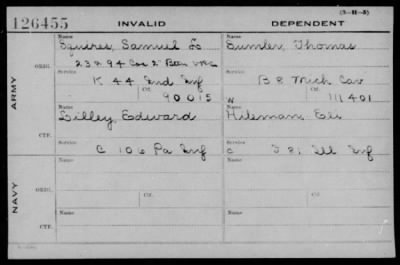 (3-III-5)
126455 INVALID DEPENDENT
Name Name
Squires, Samuel L Sumler, Thomas
ORIG.
23294 Co 2 Batt VRC
Service Service
K 44 Ind Inf B 8 Mich Cav
Ctf. Ctf.
90015 W 111401
ARMY
Lilley, Edward Hileman, Eli
CTF.
Service Service
C 106 Pa Inf C I 81 Ill Inf
Name Name
ORIG.
Service Service
Ctf. Ctf.
NAVY
Name Name
CTF.
Service Service